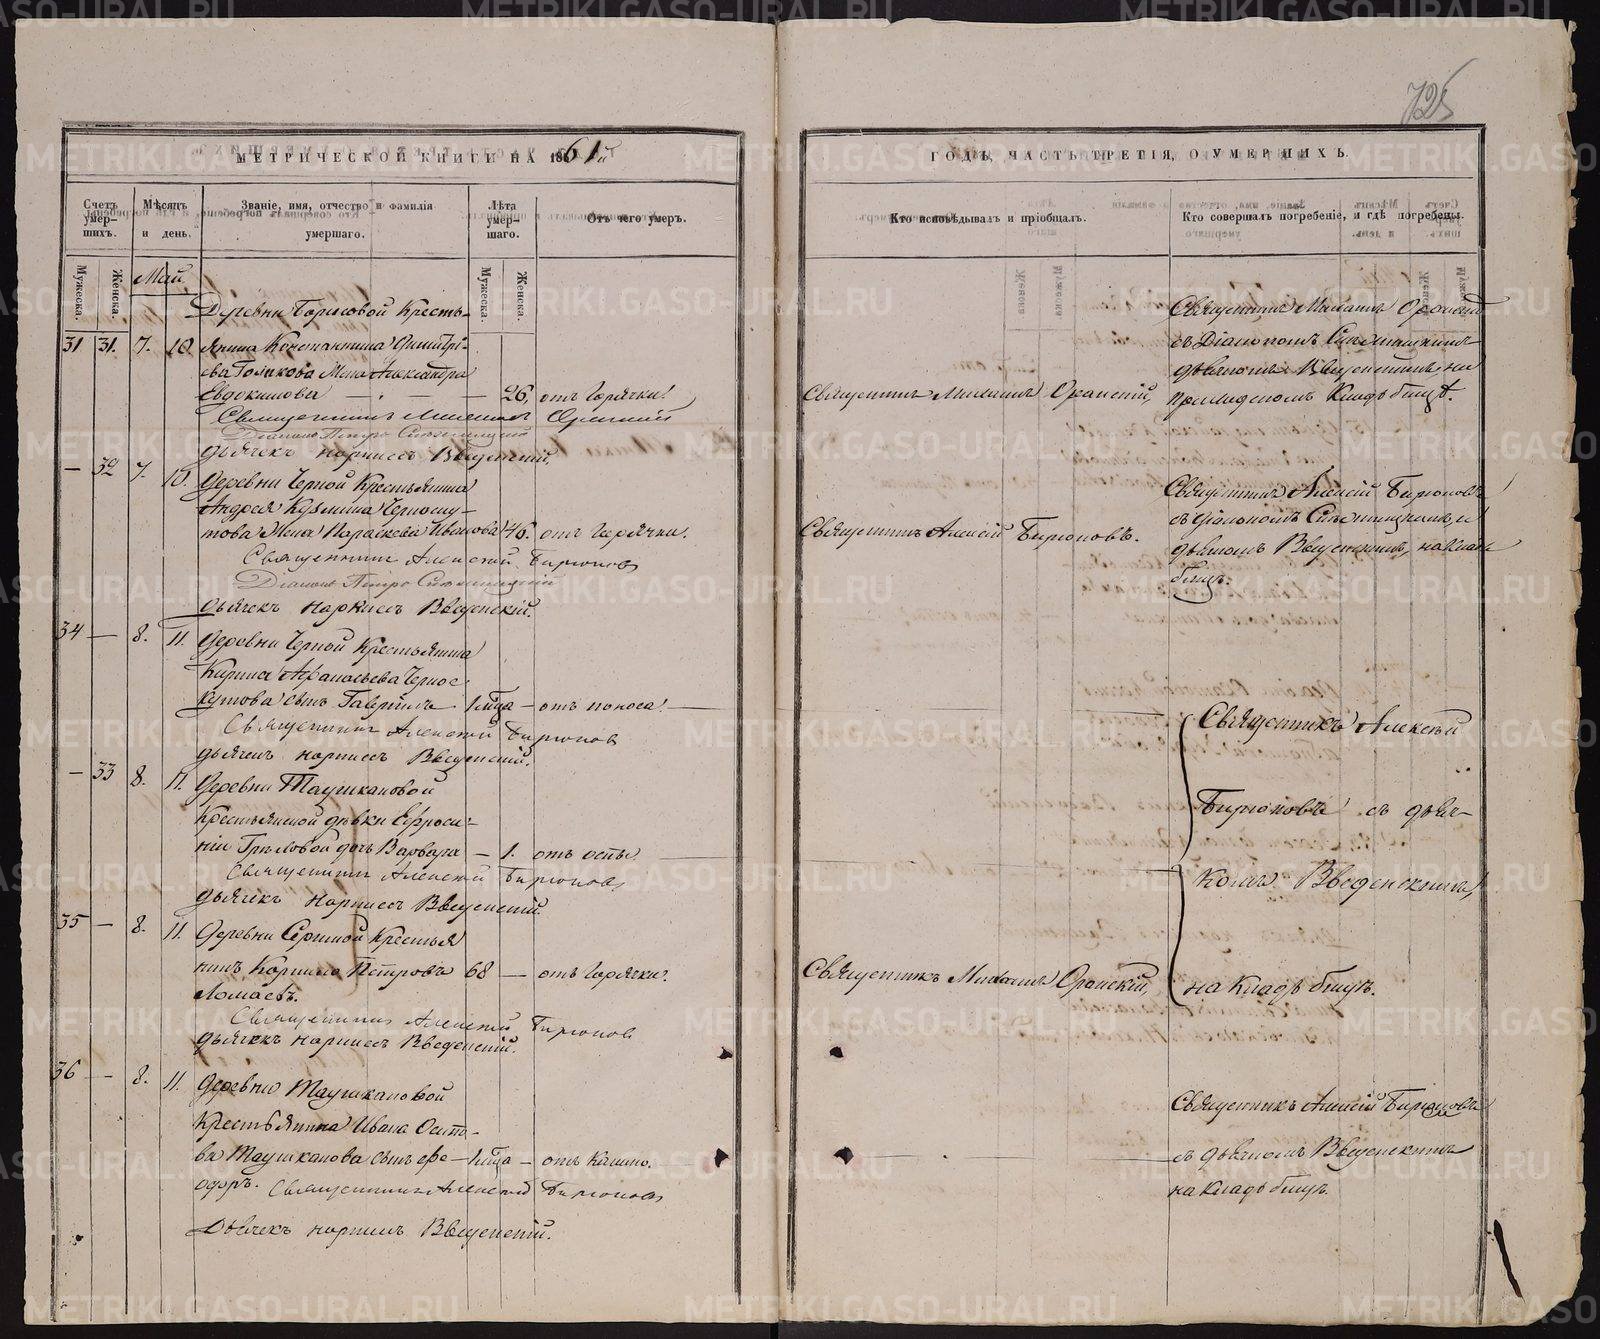 725
МЕТРИЧЕСКОЙ КНИГИ НА 1861й
Счетъ умер-шихъ.
Мѣсяцъ и день.
Званіе, имя, отчество и фамилія умершаго.
Лѣта умер-шаго.
Отъ чего умеръ.
Мужеска.
Женска.
Мужеска.
Женска.
Май
Деревни Борисовой Кресть-
31 31. 7. 10. янина Константина Димитрі-
ева Голикова Жена Александра
Евдокимова — 26, отъ Горячки.
Священникъ Михаилъ Оранскій
Діаконъ Петръ
дьячекъ Наркисъ Введенскій.
— 32 7. 10. Деревни Черной Крестьянина
Андрея Кузмина Черноску-
това Жена Параскева Иванова 46. отъ Горячки.
Священникъ Алексей Бирюковъ
Діаконъ Петръ
дьячекъ Наркисъ Введенскій.
34 — 8. 11. Деревни Черной Крестьянина
Кирила Афанасьева Чернос-
кутова сынъ Гавріилъ 1 м-ца — отъ поноса.
Священникъ Алексей Бирюков
дьячекъ Наркисъ Введенскій.
— 33 8. 11. Деревни Таушкановой
Крестьянской дѣвки Ефроси-
ніи дочь Варвара — 1. отъ оспы.
Священникъ Алексей Бирюковъ
дьячекъ Наркисъ Введенскій.
35 — 8. 11. Деревни Крестья
нинъ Корнило Петровъ 68 — отъ Горячки.
Ломаевъ.
Священникъ Алексей Бирюков
дьячекъ Наркисъ Введенскій.
36 — 8. 11. Деревни Таушкановой
Крестьянина Ивана Осипо-
ва Таушканова сынъ Фе- 1 м-ца — отъ
одоръ. Священникъ Алексей Бирюковъ
Дьячекъ Наркисъ Введенскій.
ГОДЪ, ЧАСТЬ ТРЕТІЯ, О УМЕРШИХЪ.
Кто исповѣдывалъ и пріобщалъ.
Кто совершалъ погребеніе, и гдѣ погребены.
Священникъ Михаилъ Оранскій
съ Діакономъ
дьячкомъ Введенскимъ, на
Священникъ Михаилъ Оранскій, приходскомъ Кладбищѣ.
Священникъ Алексій Бирюковъ
съ діакономъ и
Священникъ Алексій Бирюковъ. дьячкомъ Введенскимъ, на Клад-
бищѣ.
Священникъ Алексѣй
Бирюковъ съ дьяч-
комъ Введенскимъ,
Священникъ Михаилъ Оранскій, на Кладбищѣ.
Священникъ Алексій Бирюковъ
съ дьячкомъ Введенскимъ
на Кладбищѣ.
METRIKI.GASO-URAL.RU